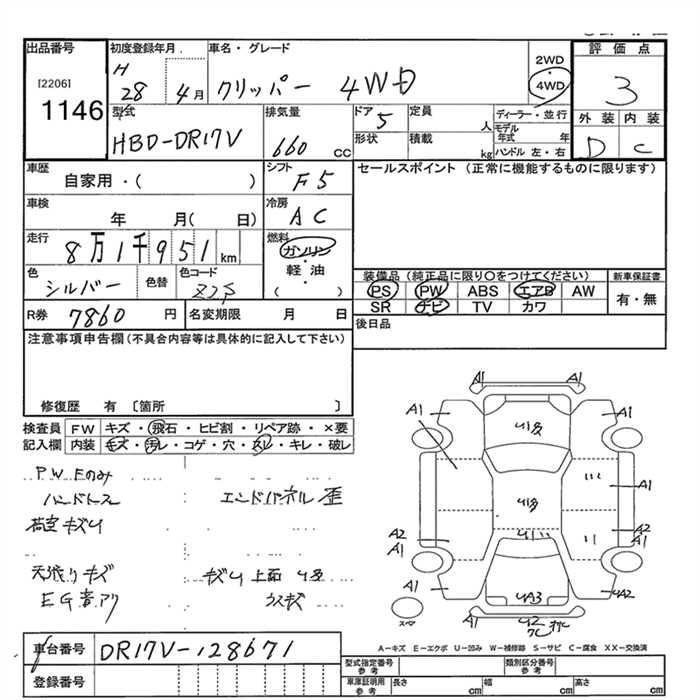 出品番号
[2206]
1146
初度登録年月
H 28 年 4 月
車名・グレード
クリッパー 4WD
2WD
・
4WD
評価点
3
型式
HBD-DR17V
排気量
660 cc
ドア
5
定員
人
形状
積載
kg
ディーラー・並行
モデル年式 年
ハンドル 左・右
外装 内装
D C
車歴
自家用・( )
シフト
F5
セールスポイント (正常に機能するものに限ります)
車検
年 月( 日)
冷房
AC
走行
8万1千951 km
燃料
ガソリン
・
軽油
・
( )
色
シルバー
色替
色コード
装備品(純正品に限り○をつけてください)
新車保証書
PS PW ABS エアB AW
有・無
SR ナビ TV カワ
R券 7860 円
名変期限 月 日
後日品
注意事項申告欄(不具合内容等は具体的に記入して下さい)
修復歴 有 〔箇所 〕
検査員 FW キズ・飛石・ヒビ割・リペア跡・×要
記入欄 内装 キズ・汚レ・コゲ・穴・スレ・キレ・破レ
PWEのみ
エンドパネル 歪
キズ
EG音アリ
キズ 上面
ウスキズ
A1
A1
A1
A1
A1
A2
A2
A1
A1
A1
4A2
4A3
A1
スペア
A-キズ E-エクボ U-凹み W-補修跡 S-サビ C-腐食 XX-交換済
車台番号 DR17V-128671
登録番号
型式指定番号
参考
類別区分番号
参考
車庫証明用
参考
長さ cm 幅 cm 高さ cm